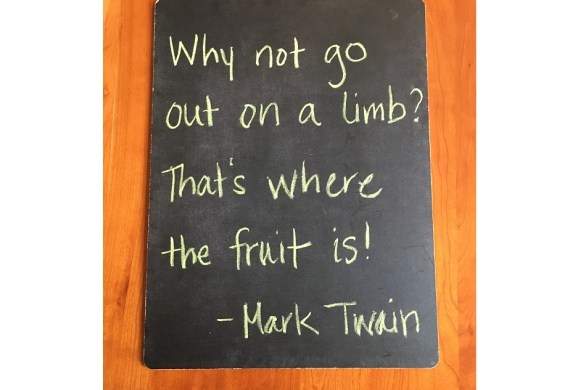 Why not go
out on a limb?
That's where
the fruit is!
-Mark Twain